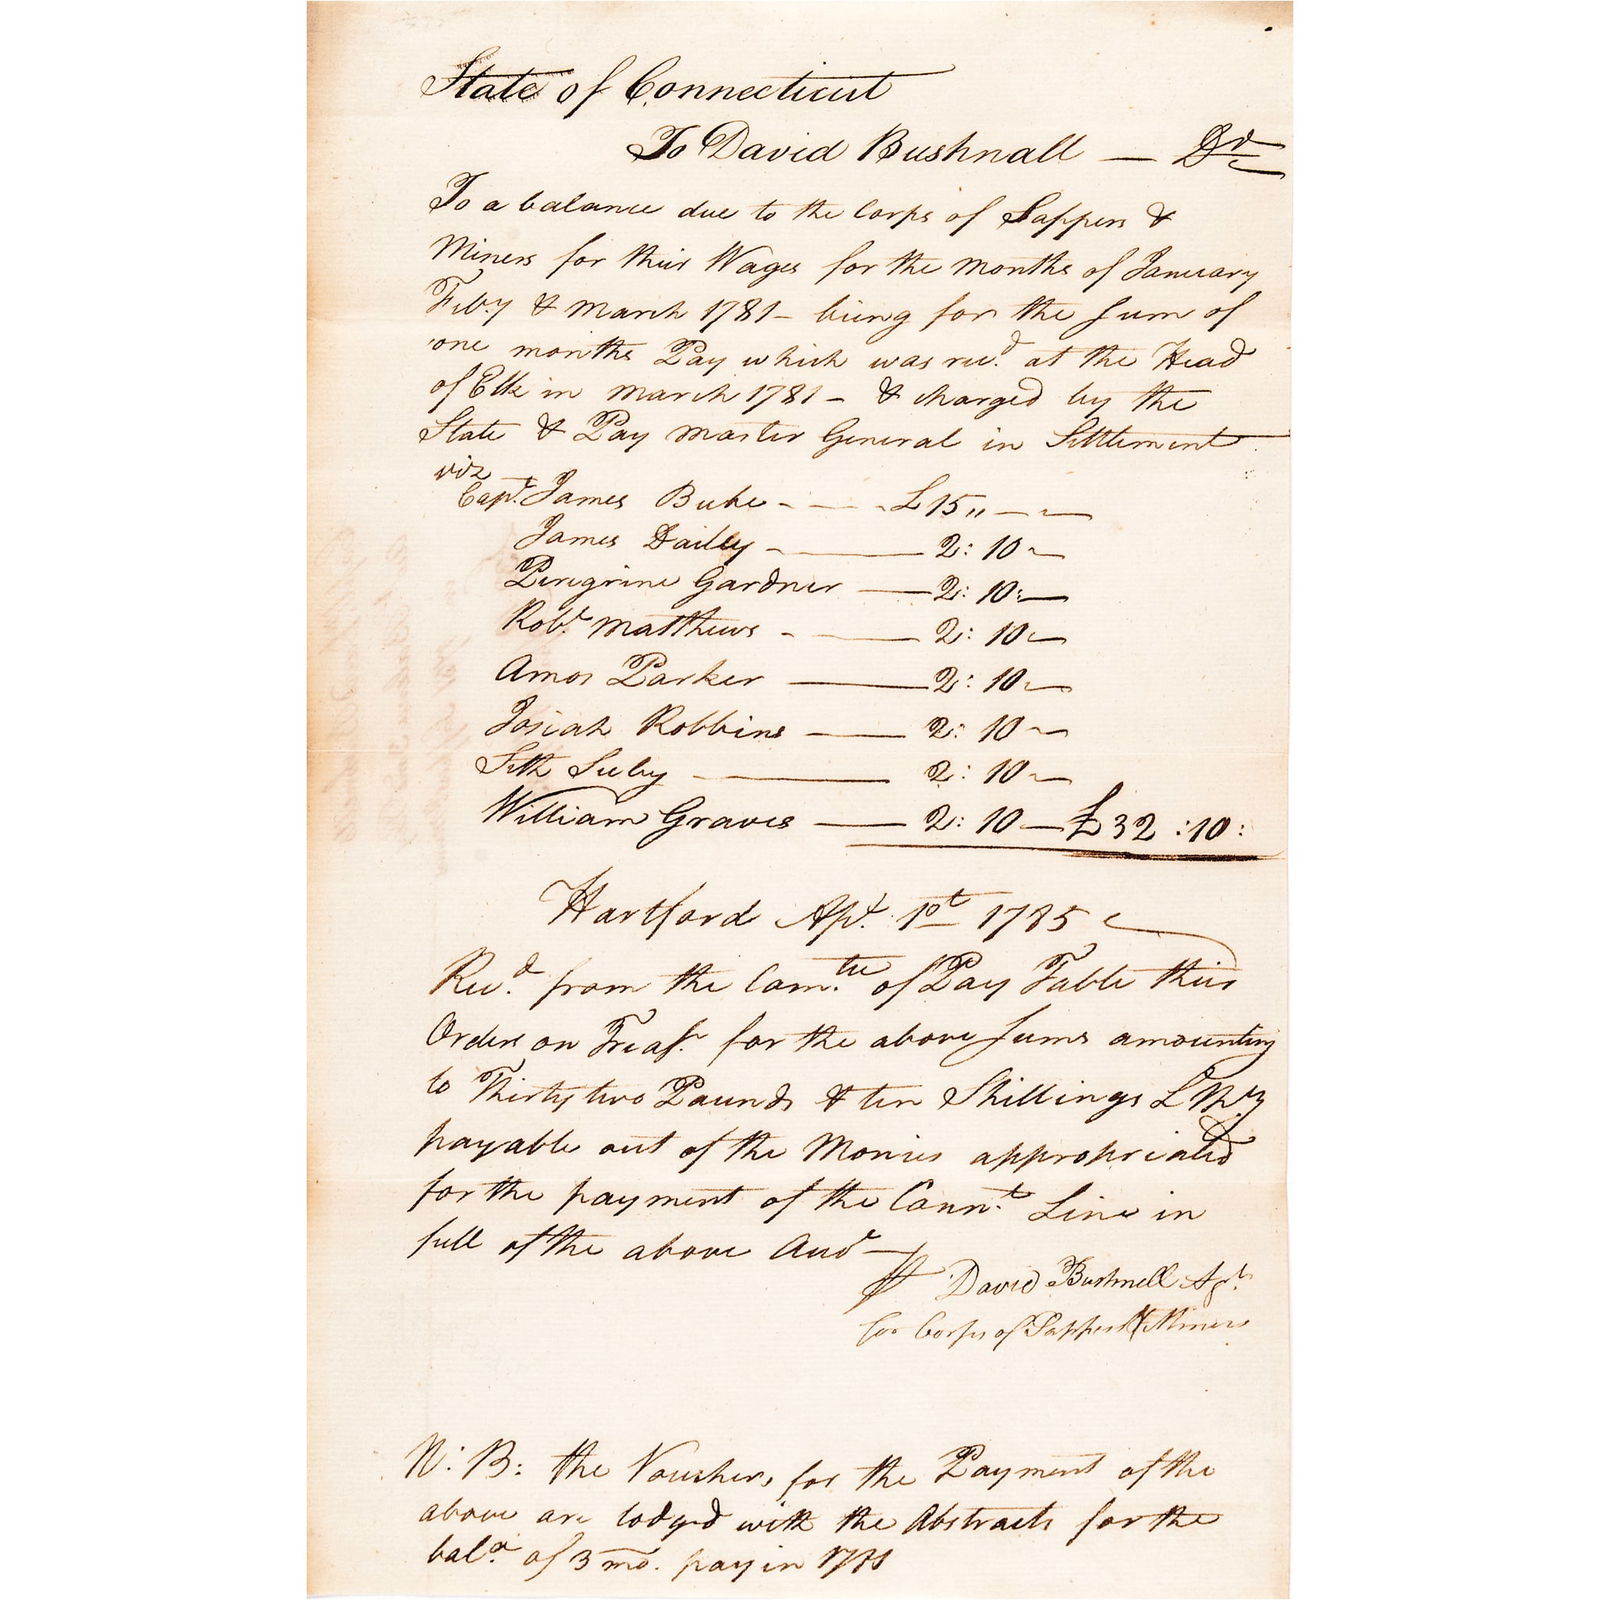 State of Connecticut
To David Bushnall — Dr
To a balance due to the Corps of Sappers &
Miners for their Wages for the Months of January
Feby & March 1781 – being for the Sum of
one months Pay which was recd. at the Head
of Elk in March 1781 – & charged by the
State & Pay Master General in Settlement
viz
Capt. James Bebe - — - £15,, — —
James Dailey — 2: 10 —
Peregrine Gardner — 2: 10: —
Robt. Matthews - — 2: 10 —
Amos Parker — 2: 10 —
Josiah Robbins — 2: 10 —
Seth Seley — 2: 10 —
William Graves — 2: 10 — £32 :10:
Hartford Apl. 1st 1785
Recd. from the Comtee. of Pay Table their
Orders on Treasr. for the above Sums amounting
to Thirty two Pounds & ten Shillings L My
payable out of the Monies appropriated
for the payment of the Connt. Line in
full of the above Acct —
David Bushnell Agt.
for Corps of Sappers & Miners
N: B: the Vouchers for the Payment of the
above are lodged with the Abstracts for the
bala. of 3 mo. pay in 1781